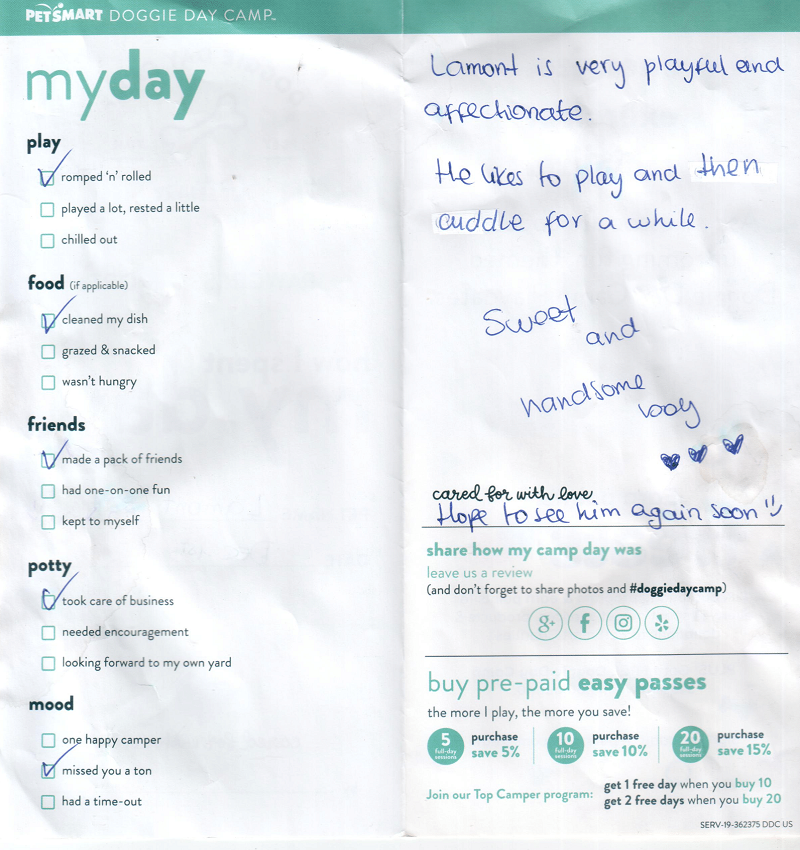 PETSMART DOGGIE DAY CAMP™
myday
play
romped 'n' rolled
played a lot, rested a little
chilled out
food (if applicable)
cleaned my dish
grazed & snacked
wasn't hungry
friends
made a pack of friends
had one-on-one fun
kept to myself
potty
took care of business
needed encouragement
looking forward to my own yard
mood
one happy camper
missed you a ton
had a time-out
Lamont is very playful and
affectionate.
He likes to play and then
cuddle for a while.
Sweet
and
handsome
boy
cared for with love
Hope to see him again soon
share how my camp day was
leave us a review
(and don't forget to share photos and #doggiedaycamp)
g+ f
buy pre-paid easy passes
the more I play, the more you save!
5 full-day sessions purchase save 5%
10 full-day sessions purchase save 10%
20 full-day sessions purchase save 15%
Join our Top Camper program: get 1 free day when you buy 10
get 2 free days when you buy 20
SERV-19-362375 DDC US